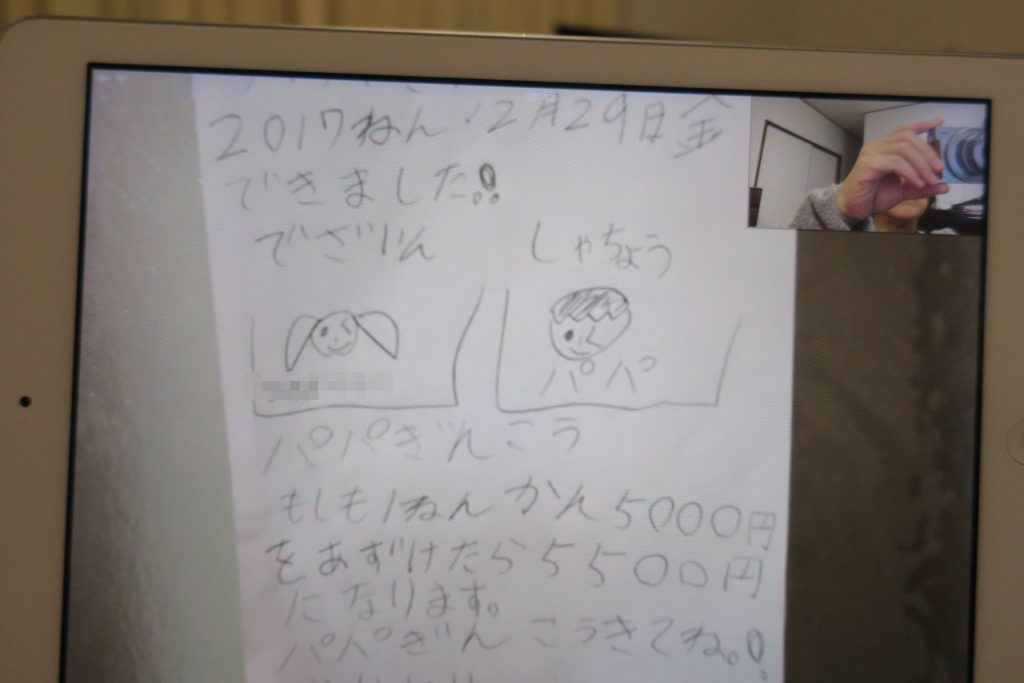 2017ねん12月29日金
できました!!
でざいん しゃちょう
パパ
パパぎんこう
もしも1ねんかん5000円
をあずけたら5500円
になります。
パパぎんこうきてね。!